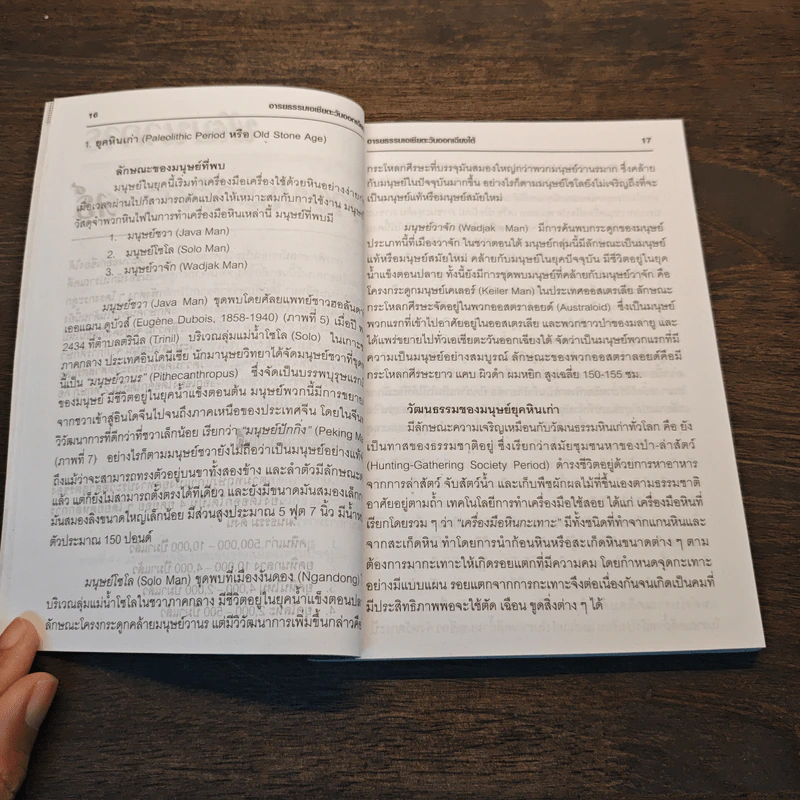 16
อารยธรรมเอเชียตะวันออกเฉียง
1. ยุคหินเก่า (Paleolithic Period หรือ Old Stone Age)
ลักษณะของมนุษย์ที่พบ
มนุษย์ในยุคนี้เริ่มทำเครื่องมือเครื่องใช้ด้วยหินอย่างง่าย
เมื่อเวลาผ่านไปก็สามารถดัดแปลงให้เหมาะสมกับการใช้งาน มนุษย์
วัสดุจำพวกหินไฟในการทำเครื่องมือหินเหล่านี้ มนุษย์ที่พบมี
1. มนุษย์ชวา (Java Man)
2. มนุษย์โซโล (Solo Man)
3. มนุษย์วาจัก (Wadjak Man)
มนุษย์ชวา (Java Man) ขุดพบโดยศัลยแพทย์ชาวฮอลันดา
เออแฌน ดูบัวส์ (Eugène Dubois, 1858-1940) (ภาพที่ 5) เมื่อปี
2434 ที่ตำบลตรินิล (Trinil) บริเวณลุ่มแม่น้ำโซโล (Solo) ในเกาะ
ภาคกลาง ประเทศอินโดนีเซีย นักมานุษยวิทยาได้จัดมนุษย์ชวาที่ขุด
นี้เป็น "มนุษย์วานร" (Pithecanthropus) ซึ่งจัดเป็นบรรพบุรุษแรก
ของมนุษย์ มีชีวิตอยู่ในยุคน้ำแข็งตอนต้น มนุษย์พวกนี้มีการขยาย
จากชวาเข้าสู่อินโดจีนไปจนถึงภาคเหนือของประเทศจีน โดยในจีน
วิวัฒนาการที่ดีกว่าที่ชวาเล็กน้อย เรียกว่า "มนุษย์ปักกิ่ง" (Peking
(ภาพที่ 7) อย่างไรก็ตามมนุษย์ชวายังไม่ถือว่าเป็นมนุษย์อย่าง
ถึงแม้ว่าจะสามารถทรงตัวอยู่บนขาทั้งสองข้าง และลำตัวมีลักษณะ
แล้ว แต่ก็ยังไม่สามารถตั้งตรงได้ทีเดียว และยังมีขนาดมันสมองเล็ก
มันสมองลิงขนาดใหญ่เล็กน้อย มีส่วนสูงประมาณ 5 ฟุต 7 นิ้ว มีน้ำ
ตัวประมาณ 150 ปอนด์
มนุษย์โซโล (Solo Man) ขุดพบที่เมืองงันดอง (Ngandong)
บริเวณลุ่มแม่น้ำโซโลในชวาภาคกลาง มีชีวิตอยู่ในยุคน้ำแข็งตอน
ลักษณะโครงกระดูกคล้ายมนุษย์วานร แต่มีวิวัฒนาการเพิ่มขึ้นกล่าวคือ
อารยธรรมเอเชียตะวันออกเฉียงใต้
17
กระโหลกศีรษะที่บรรจุมันสมองใหญ่กว่าพวกมนุษย์วานรมาก ซึ่งคล้าย
กับมนุษย์ในปัจจุบันมากขึ้น อย่างไรก็ตามมนุษย์โซโลยังไม่เจริญถึงที่จะ
เป็นมนุษย์แท้หรือมนุษย์สมัยใหม่
มนุษย์วาจัก (Wadjak Man) มีการค้นพบกระดูกของมนุษย์
ประเภทนี้ที่เมืองวาจัก ในชวาตอนใต้ มนุษย์กลุ่มนี้มีลักษณะเป็นมนุษย์
แท้หรือมนุษย์สมัยใหม่ คล้ายกับมนุษย์ในยุคปัจจุบัน มีชีวิตอยู่ในยุค
น้ำแข็งตอนปลาย ทั้งนี้ยังมีการขุดพบมนุษย์ที่คล้ายกับมนุษย์วาจัก คือ
โครงกระดูกมนุษย์เคเลอร์ (Keiler Man) ในประเทศออสเตรเลีย ลักษณะ
กระโหลกศีรษะจัดอยู่ในพวกออสตราลอยด์ (Australoid) ซึ่งเป็นมนุษย์
พวกแรกที่เข้าไปอาศัยอยู่ในออสเตรเลีย และพวกชาวป่าของมลายู และ
ได้แพร่ขยายไปทั่วเอเชียตะวันออกเฉียงใต้ จัดว่าเป็นมนุษย์พวกแรกที่มี
ความเป็นมนุษย์อย่างสมบูรณ์ ลักษณะของพวกออสตราลอยด์คือมี
กระโหลกศีรษะยาว แคบ ผิวดำ ผมหยิก สูงเฉลี่ย 150-155 ซม.
วัฒนธรรมของมนุษย์ยุคหินเก่า
มีลักษณะความเจริญเหมือนกับวัฒนธรรมหินเก่าทั่วโลก คือ ยัง
เป็นทาสของธรรมชาติอยู่ ซึ่งเรียกว่าสมัยชุมชนหาของป่า-ล่าสัตว์
(Hunting-Gathering Society Period) ดำรงชีวิตอยู่ด้วยการหาอาหาร
จากการล่าสัตว์ จับสัตว์น้ำ และเก็บพืชผักผลไม้ที่ขึ้นเองตามธรรมชาติ
อาศัยอยู่ตามถ้ำ เทคโนโลยีการทำเครื่องมือใช้สอย ได้แก่ เครื่องมือหินที่
เรียกโดยรวม ๆ ว่า "เครื่องมือหินกะเทาะ" มีทั้งชนิดที่ทำจากแกนหินและ
จากสะเก็ดหิน ทำโดยการนำก้อนหินหรือสะเก็ดหินขนาดต่าง ๆ ตาม
ต้องการมากะเทาะให้เกิดรอยแตกที่มีความคม โดยกำหนดจุดกะเทาะ
อย่างมีแบบแผน รอยแตกจากการกะเทาะจึงต่อเนื่องกันจนเกิดเป็นคมที่
มีประสิทธิภาพพอจะใช้ตัด เฉือน ขุดสิ่งต่าง ๆ ได้